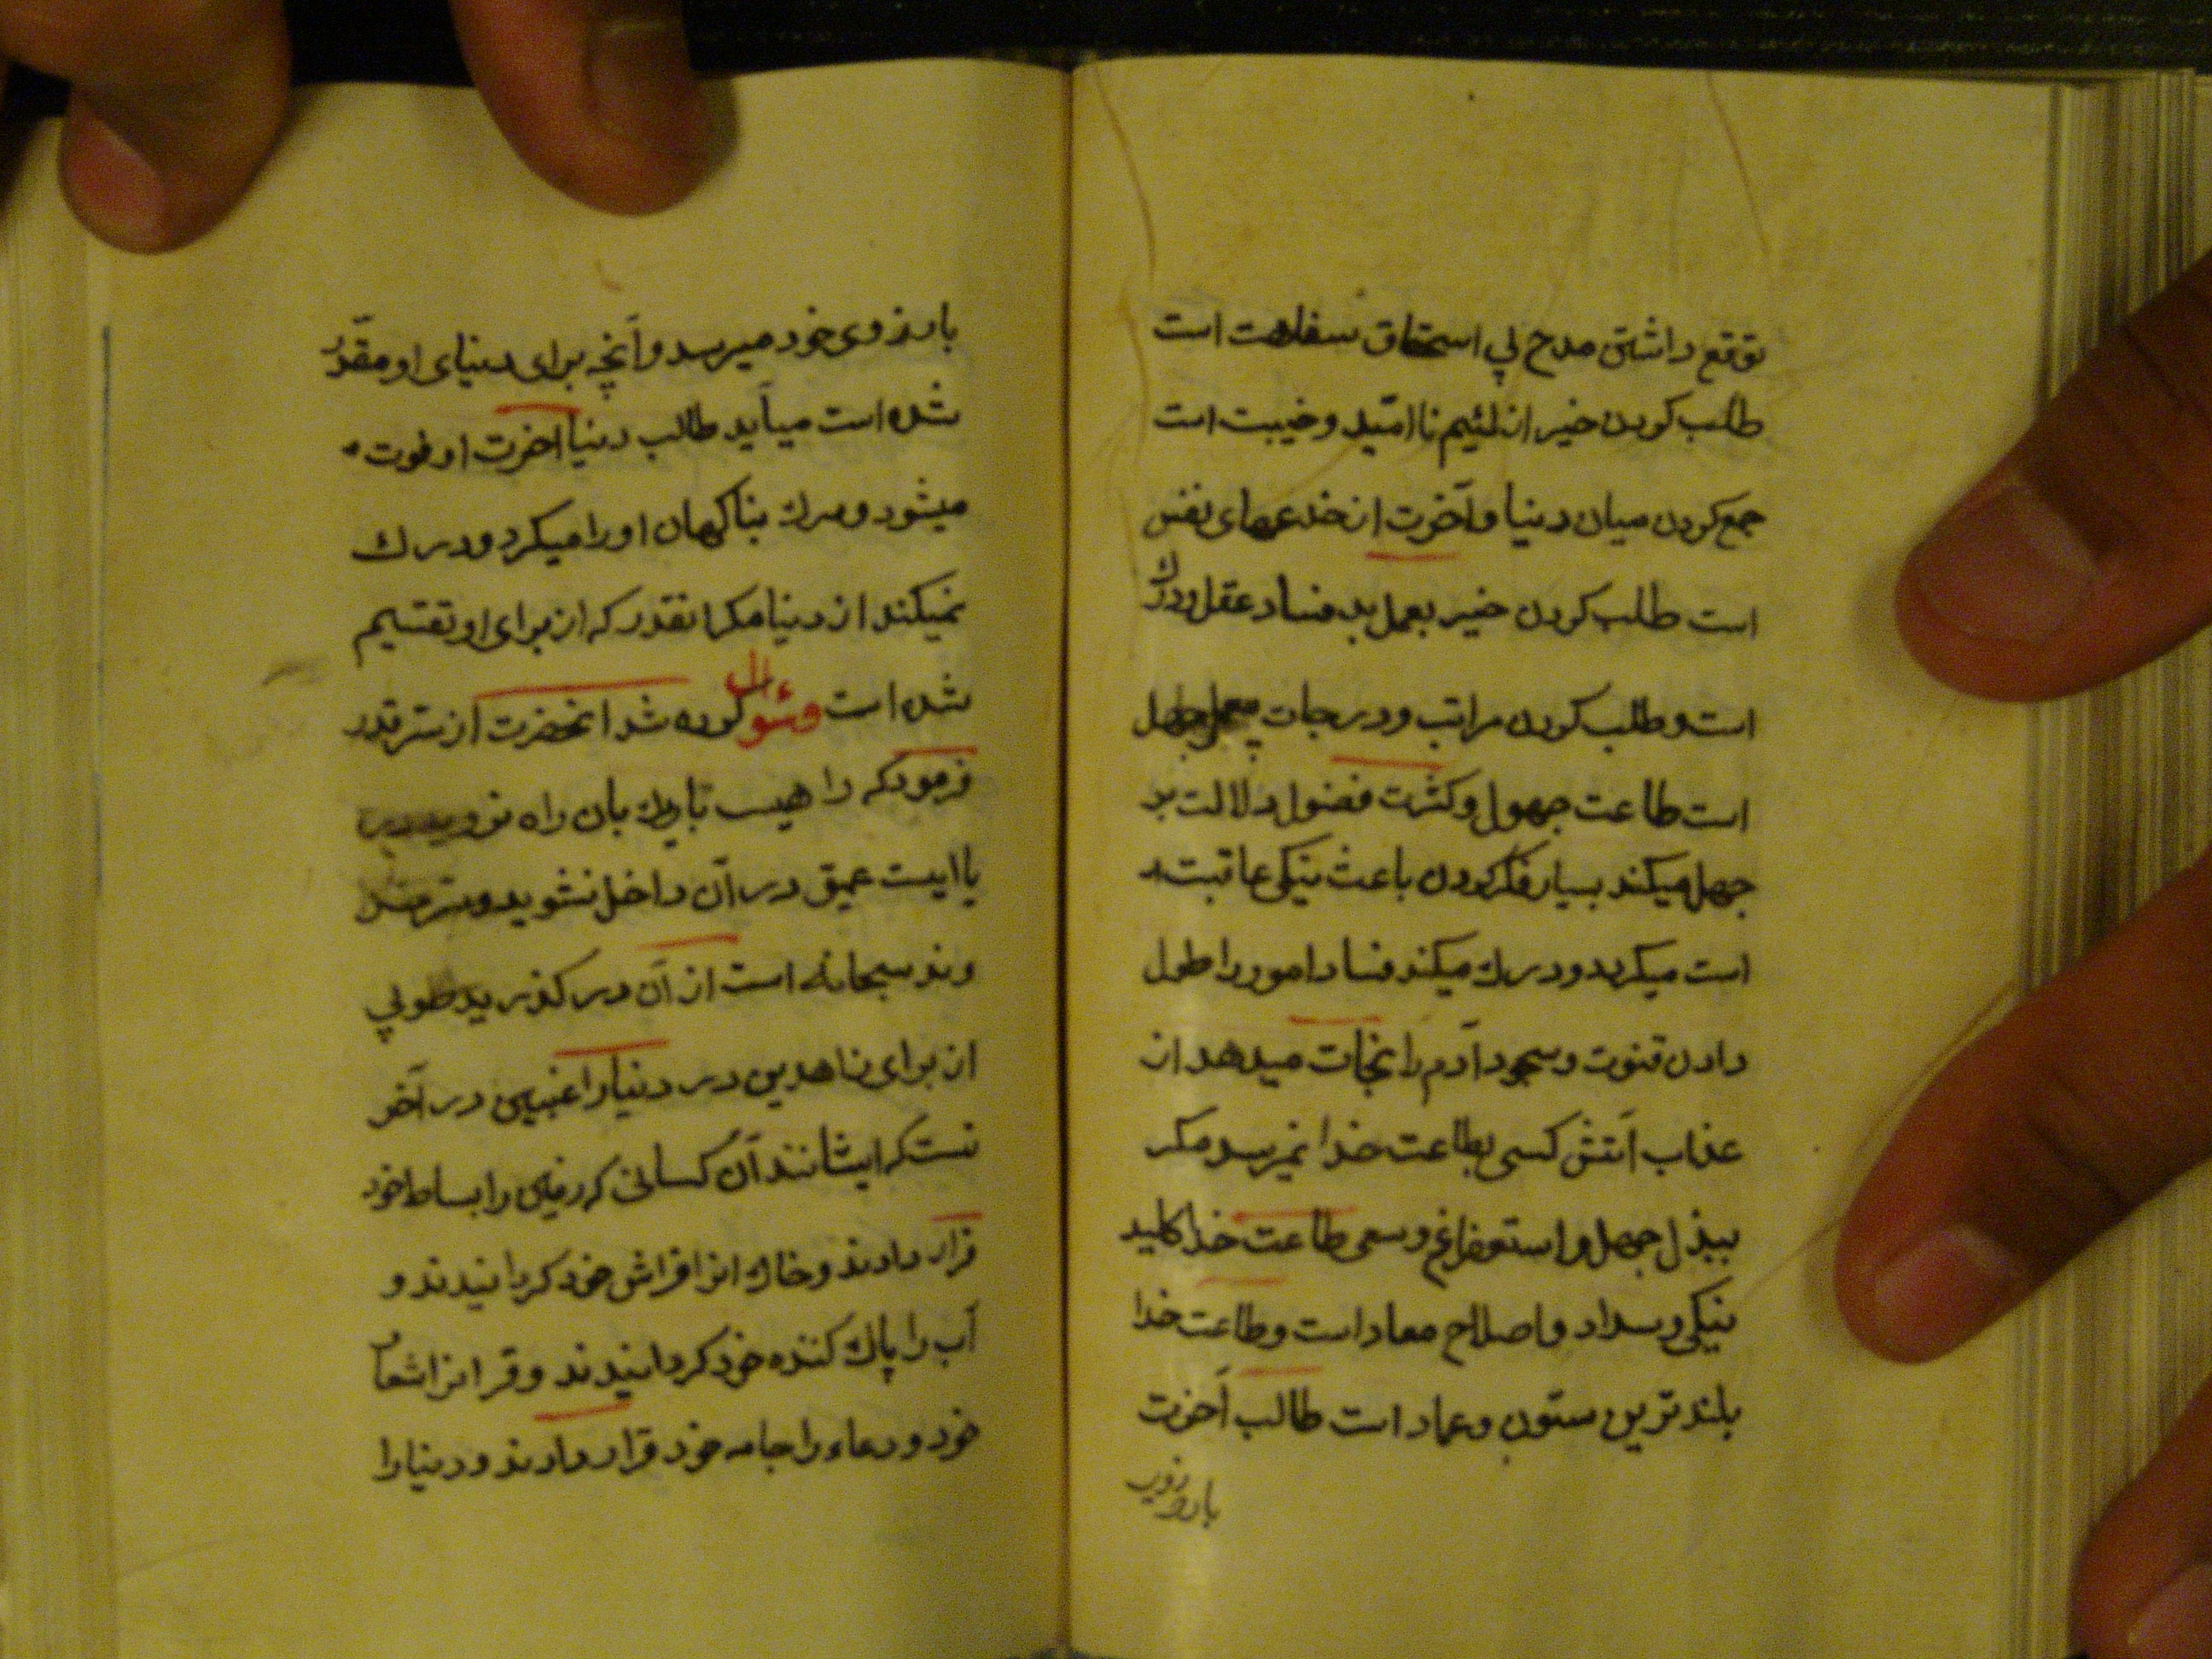 توقع داشتن مدح بی استحقاق سفاهت است
طلب کردن خیر از لئیم ناامّید و خیبت است
جمع کردن میان دنیا و آخرت از خدعهای نفس
است طلب کردن خیر بعمل بد فساد عقل ودرك
است و طلب کردن مراتب و درجات بعمل جهل
است طاعت جهول و کثرت فضول دلالت بر
جهل میکند بسیار فکر کردن باعث نیکی عاقبت
است میکرید و درك میکند فساد امور را طول
دادن قنوت و سجود آدم را نجات میدهد از
عذاب آتش کسی بطاعت خدا نمیرسد مکر
ببذل جهل و استفراغ و سعی طاعت خدا کلید
نیکی و سداد و اصلاح معاد است و طاعت خدا
بلند ترین ستون و عماد است طالب آخرت
بارزوی
بارزوی خود میرسد و آنچه برای دنیای او مقدّر
شده است میآید طالب دنیا آخرت او فوت
میشود و مرك بناکهان او را میکرد و درك
نمیکند از دنیا مکر انقدر که از برای او تقسیم
شده است وسؤال کرده شد انحضرت از ستر قدر
فرمود که راهیست تاریك بان راه نروید
یا ایست عمیق در آن داخل نشوید و ستر
وند سبحانه است از آن در کذرید طوبی
از برای زاهدین در دنیا راغبین در آخر
تست که ایشانند آن کسانی که زمین را بساط خود
قرار دادند و خاك انرا فراش خود کردانیدند و
آب را پاك کننده خود کردانیدند و قرانرا شعار
خود و دعاء را جامه خود قرار دادند و دنیا را